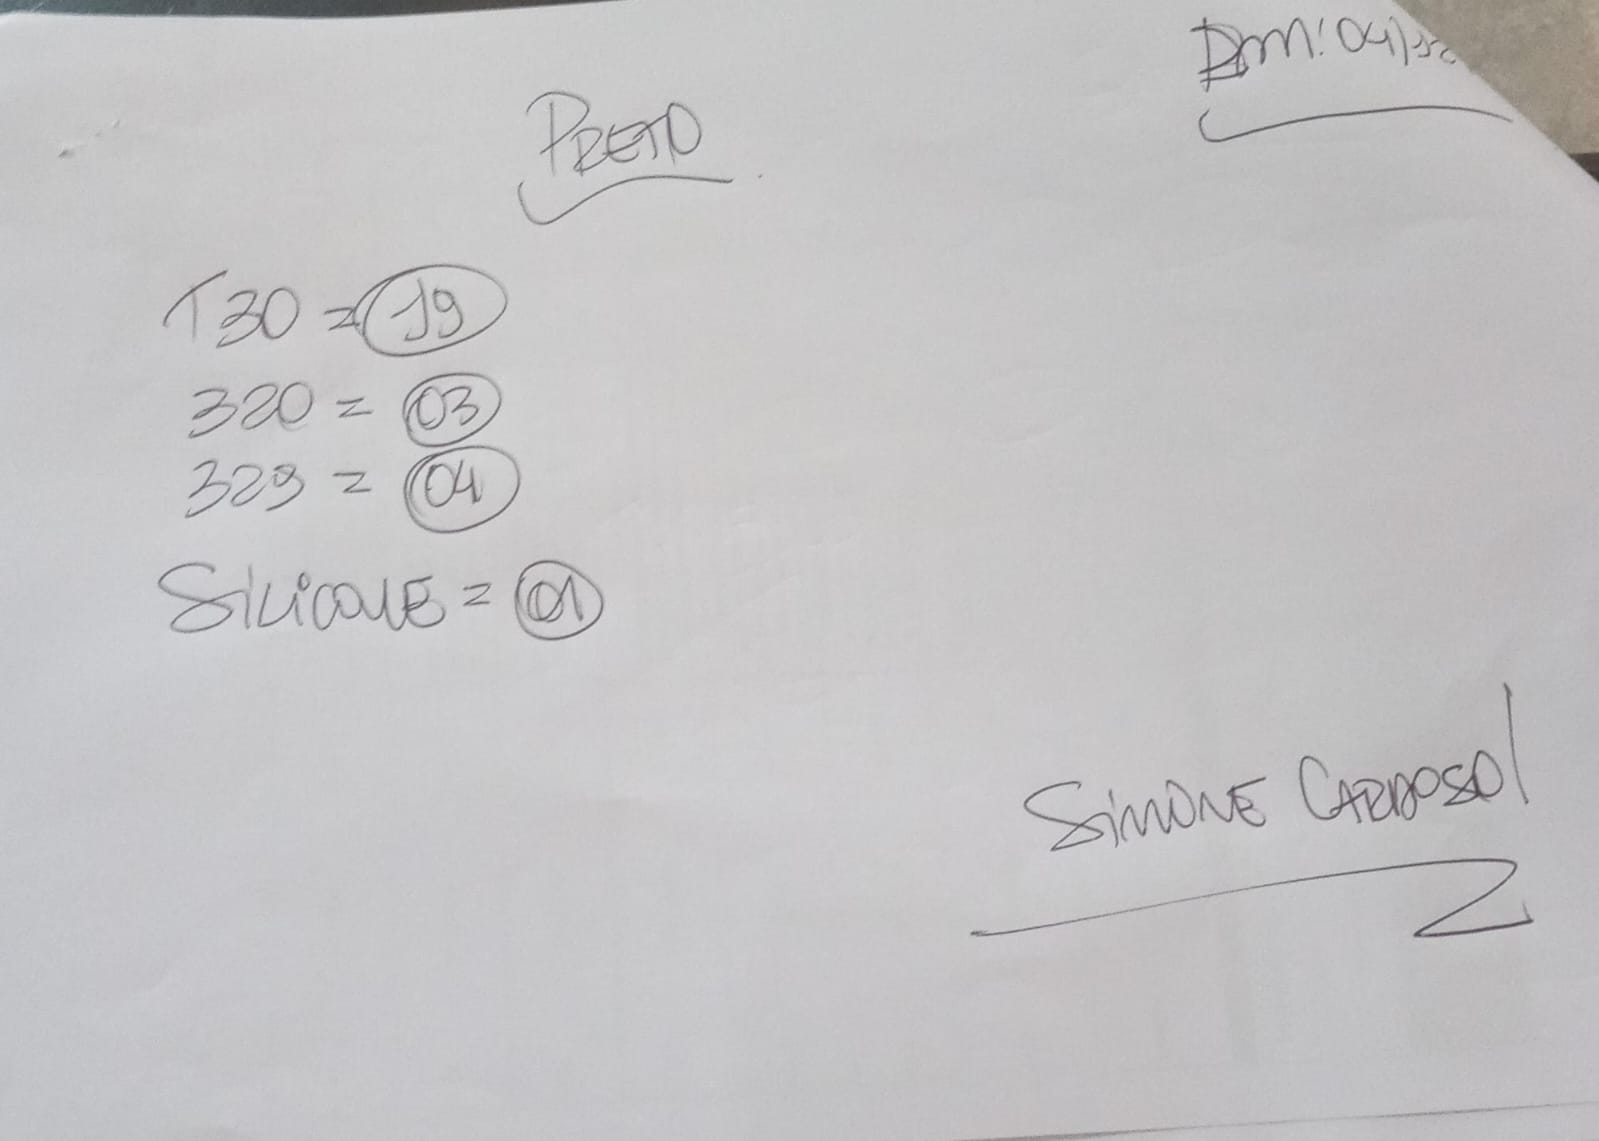 PRETO
T30 = 19
320 = 03
329 = 04
SILICONE = 01
SIMONE CARDOSO